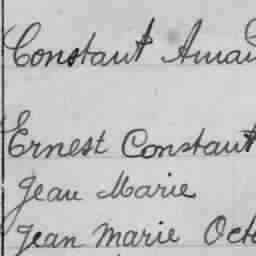 Constant Amand
Ernest Constant
Jean Marie
Jean Marie Octa